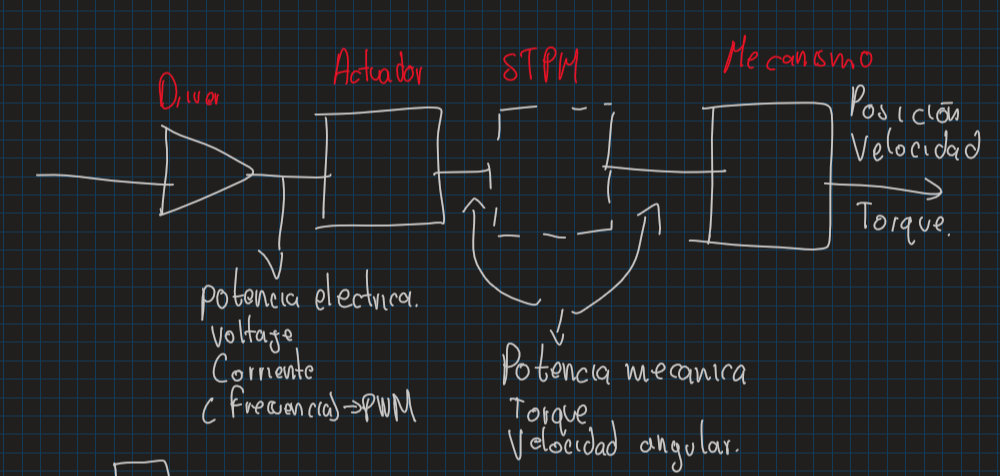 Driver
Actuador
STPM
Mecanismo
Posición
Velocidad
Torque.
potencia electrica.
voltage
Corriente
( frecuencia)→PWM
Potencia mecanica
Torque
Velocidad angular.